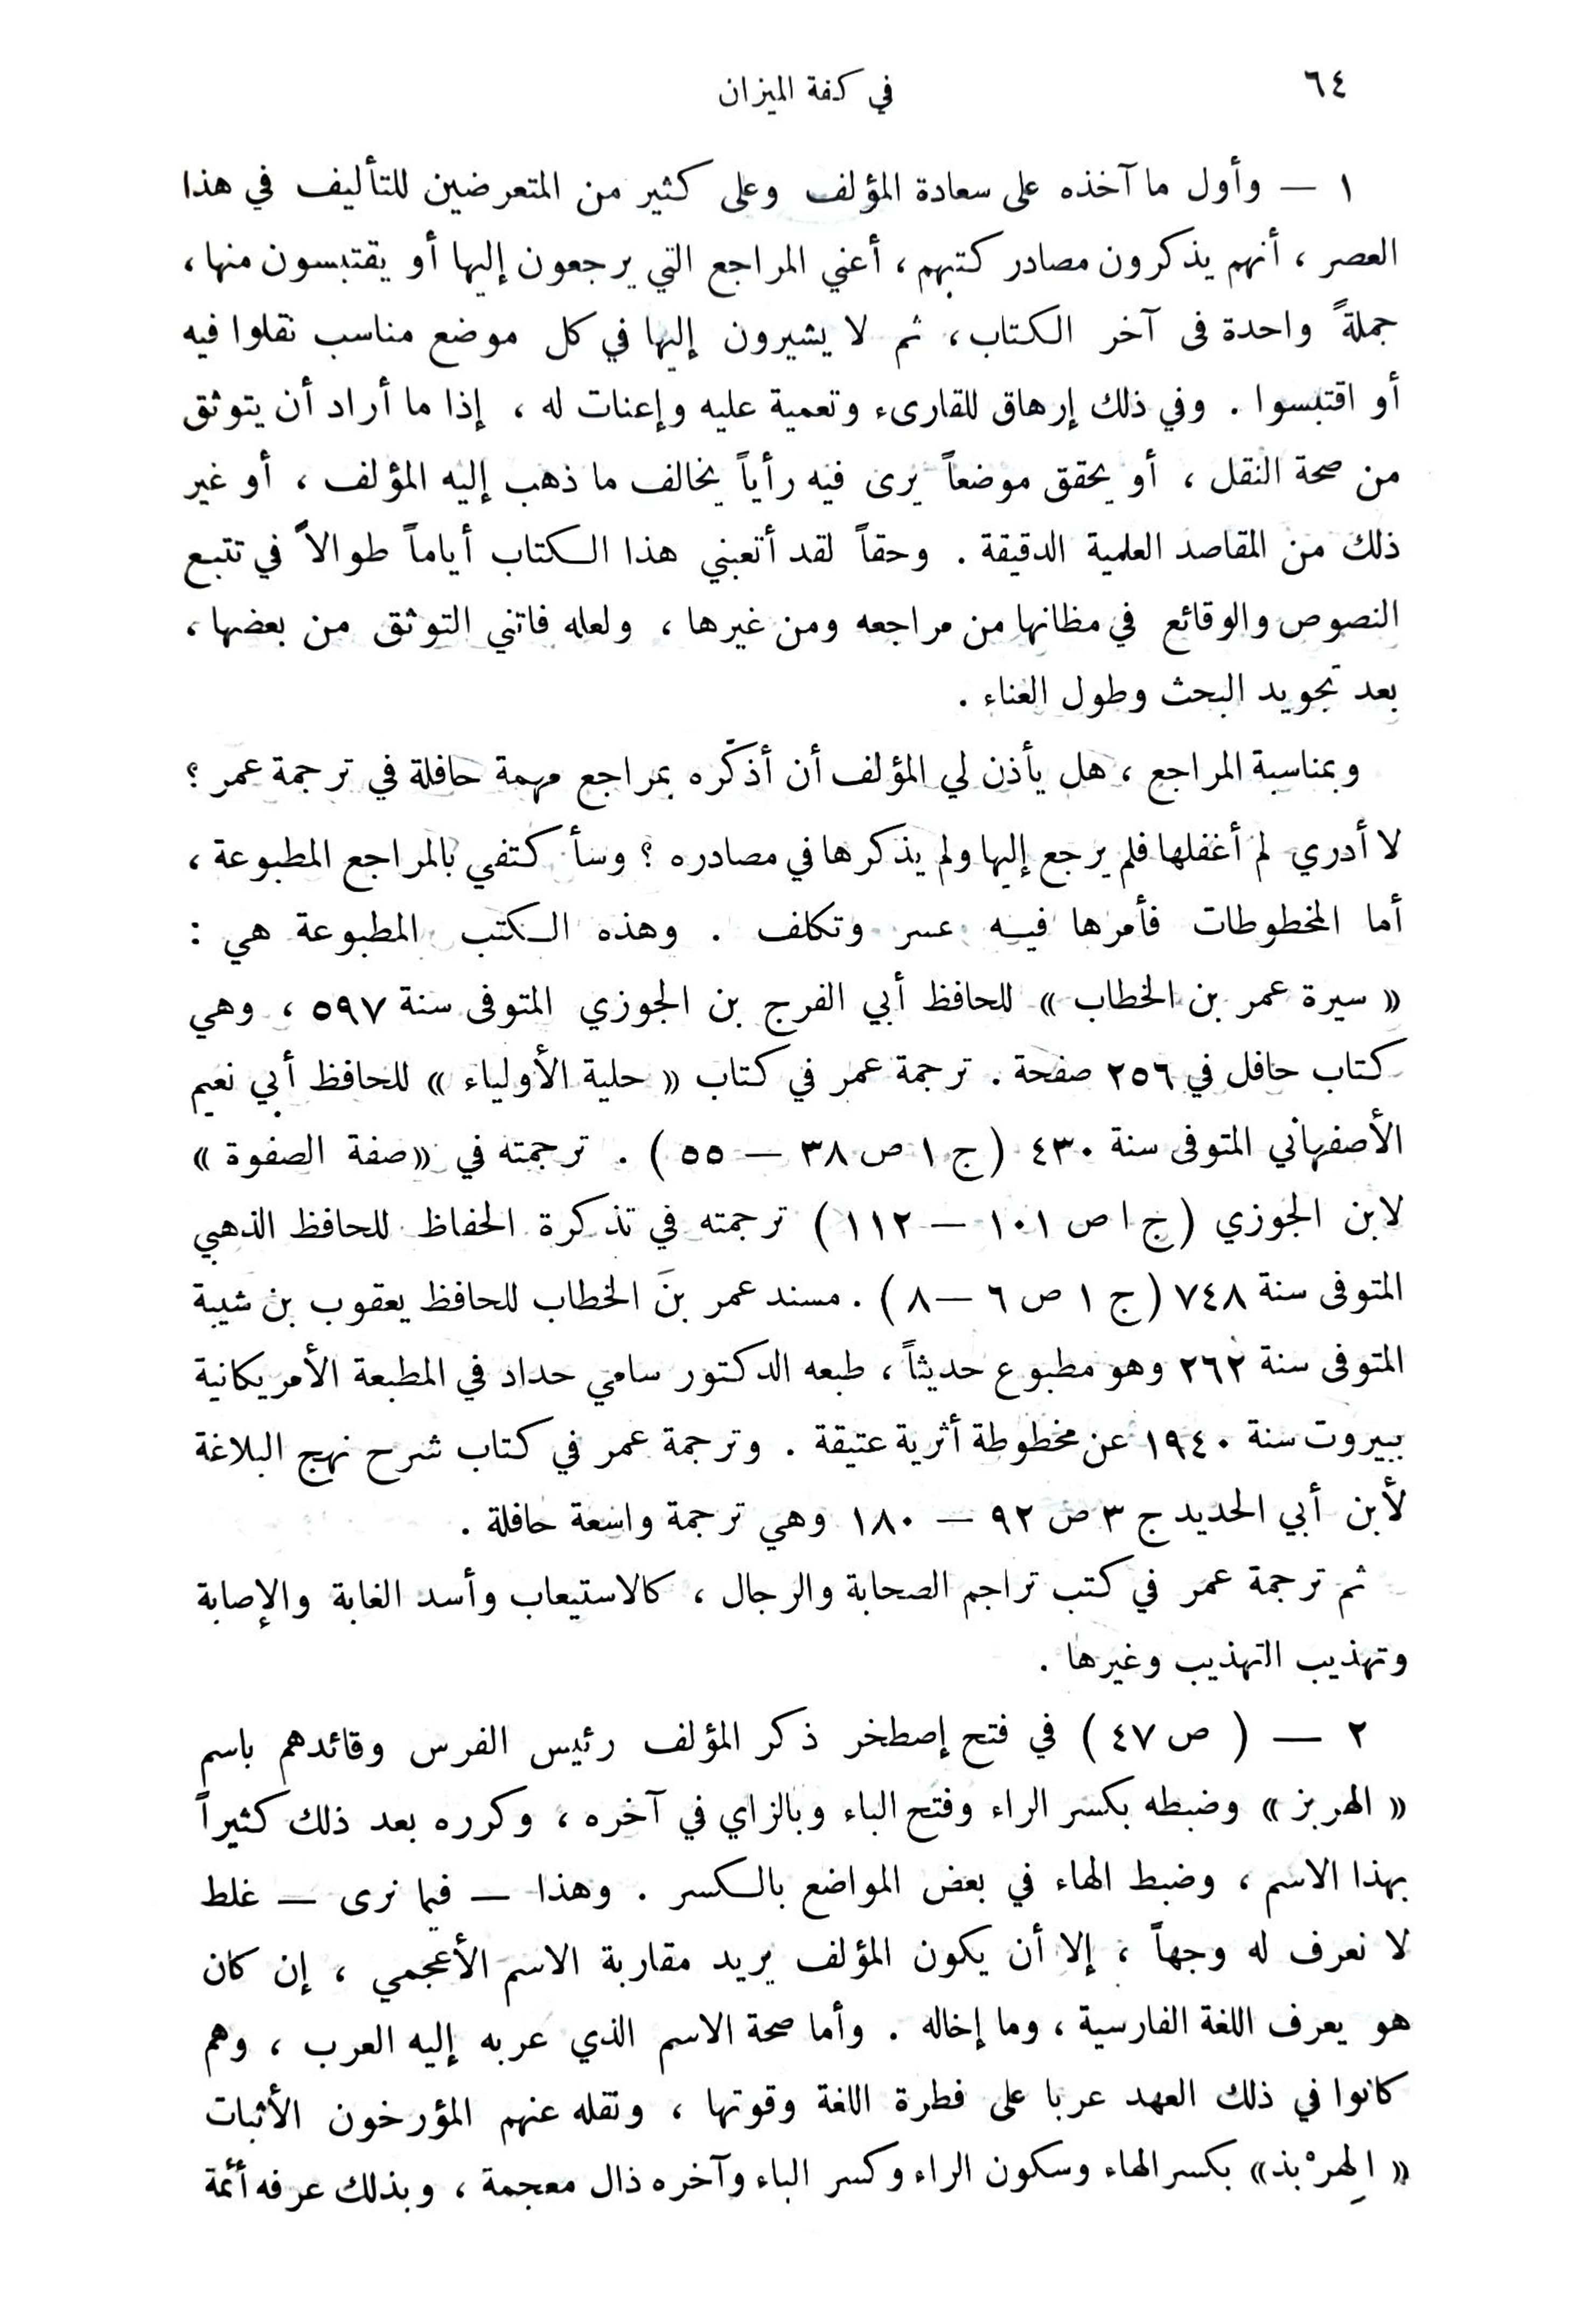 ٦٤
في كفة الميزان
١ — وأول ما آخذه على سعادة المؤلف وعلى كثير من المتعرضين للتأليف في هذا
العصر ، أنهم يذكرون مصادر كتبهم ، أعني المراجع التي يرجعون إليها أو يقتبسون منها ،
جملةً واحدة فى آخر الكتاب ، ثم لا يشيرون إليها في كل موضع مناسب نقلوا فيه
أو اقتبسوا . وفي ذلك إرهاق للقارىء وتعمية عليه وإعنات له ، إذا ما أراد أن يتوثق
من صحة النقل ، أو يحقق موضعاً يرى فيه رأياً يخالف ما ذهب إليه المؤلف ، أو غير
ذلك من المقاصد العلمية الدقيقة . وحقاً لقد أتعبني هذا الكتاب أياماً طوالاً في تتبع
النصوص والوقائع في مظانها من مراجعه ومن غيرها ، ولعله فاتني التوثق من بعضها ،
بعد تجويد البحث وطول العناء .
وبمناسبة المراجع ، هل يأذن لي المؤلف أن أذكّره بمراجع مهمة حافلة في ترجمة عمر ؟
لا أدري لم أغفلها فلم يرجع إليها ولم يذكرها في مصادره ؟ وسأكتفي بالمراجع المطبوعة ،
أما المخطوطات فأمرها فيه عسر وتكلف . وهذه الكتب المطبوعة هي :
« سيرة عمر بن الخطاب » للحافظ أبي الفرج بن الجوزي المتوفى سنة ٥٩٧ ، وهي
كتاب حافل في ٢٥٦ صفحة . ترجمة عمر في كتاب « حلية الأولياء » للحافظ أبي نعيم
الأصفهاني المتوفى سنة ٤٣٠ ( ج ١ ص ٣٨ — ٥٥ ) . ترجمته في « صفة الصفوة »
لابن الجوزي ( ج ١ ص ١٠١ — ١١٢ ) ترجمته في تذكرة الحفاظ للحافظ الذهبي
المتوفى سنة ٧٤٨ ( ج ١ ص ٦ — ٨ ) . مسند عمر بنَ الخطاب للحافظ يعقوب بن شيبة
المتوفى سنة ٢٦٢ وهو مطبوع حديثاً ، طبعه الدكتور سامي حداد في المطبعة الأمريكانية
ببيروت سنة ١٩٤٠ عن مخطوطة أثرية عتيقة . وترجمة عمر في كتاب شرح نهج البلاغة
لأبن أبي الحديد ج ٣ ص ٩٢ — ١٨٠ وهي ترجمة واسعة حافلة .
ثم ترجمة عمر في كتب تراجم الصحابة والرجال ، كالاستيعاب وأسد الغابة والإصابة
وتهذيب التهذيب وغيرها .
٢ — ( ص ٤٧ ) في فتح إصطخر ذكر المؤلف رئيس الفرس وقائدهم باسم
« الهربز » وضبطه بكسر الراء وفتح الباء وبالزاي في آخره ، وكرره بعد ذلك كثيراً
بهذا الاسم ، وضبط الهاء في بعض المواضع بالكسر . وهذا — فيما نرى — غلط
لا نعرف له وجهاً ، إلا أن يكون المؤلف يريد مقاربة الاسم الأعجمي ، إن كان
هو يعرف اللغة الفارسية ، وما إخاله . وأما صحة الاسم الذي عربه إليه العرب ، وهم
كانوا في ذلك العهد عربا على فطرة اللغة وقوتها ، ونقله عنهم المؤرخون الأثبات
« الهِرْبذ » بكسر الهاء وسكون الراء وكسر الباء وآخره ذال معجمة ، وبذلك عرفه أئمة